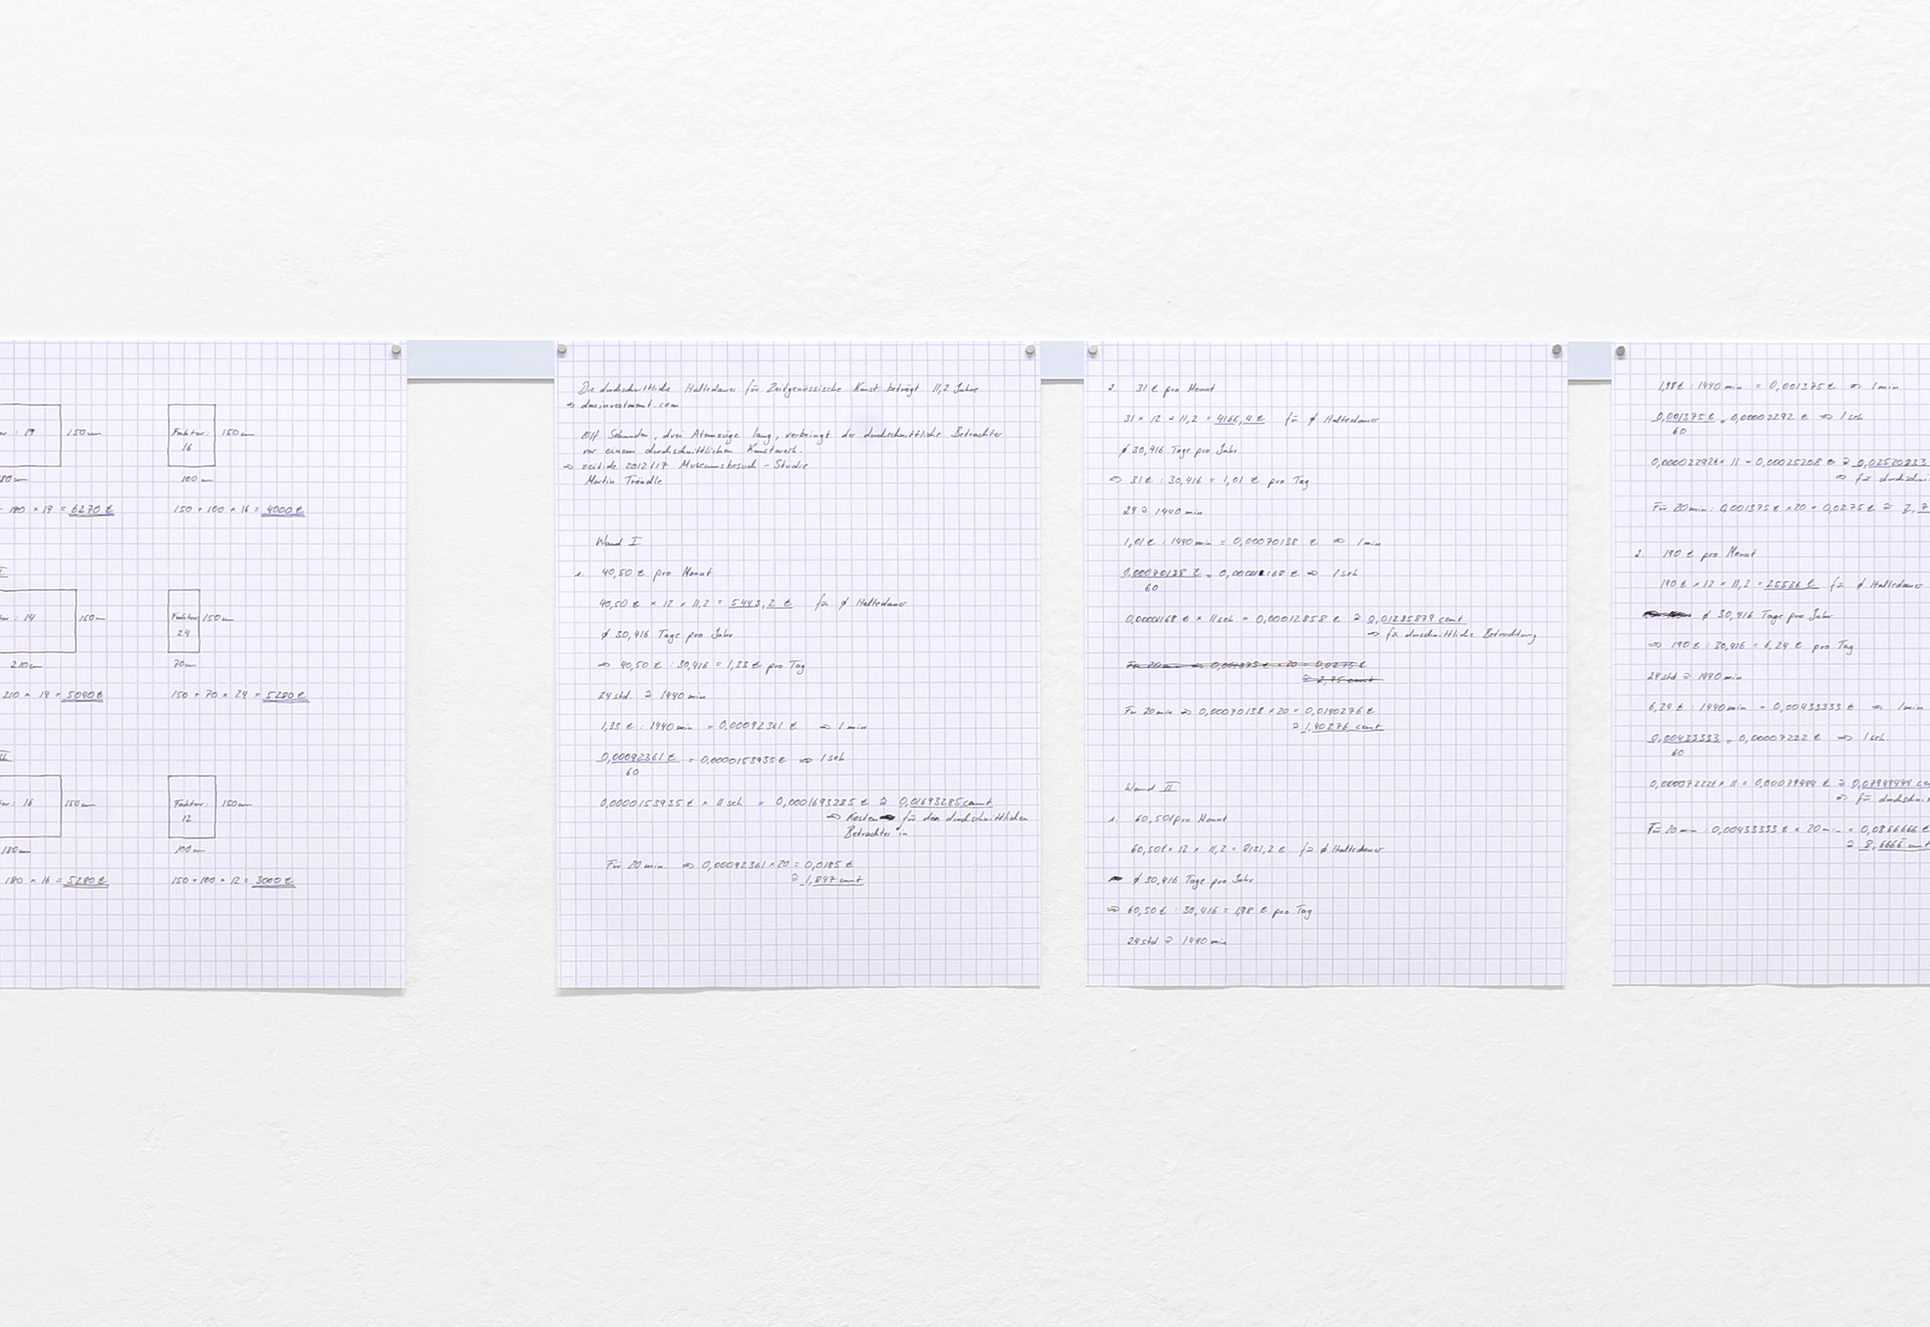 : 19 150cm Faktor: 150cm
16
80cm 100cm
180 × 19 = 6270 € 150 + 100 × 16 = 4000 €
: 14 150cm Faktor 150cm
24
210cm 70cm
210 × 14 = 5040 € 150 + 70 × 24 = 5280 €
: 16 150cm Faktor: 150cm
12
180cm 100cm
180 × 16 = 5280 € 150 + 100 × 12 = 3000 €
Die durchschnittliche Haltedauer für Zeitgenössische Kunst beträgt 11,2 Jahre
⇒ dasinvestment.com
Elf Sekunden, drei Atemzüge lang, verbringt der durchschnittliche Betrachter
vor einem durchschnittlichen Kunstwerk.
⇒ zeit.de 2012/17 Museumsbesuch - Studie
Martin Tröndle
Wand I
1. 40,50 € pro Monat
40,50 € × 12 × 11,2 = 5443,2 € für ∅ Haltedauer
∅ 30,416 Tage pro Jahr
⇒ 40,50 € : 30,416 = 1,33 € pro Tag
24 std. ≙ 1440 min
1,33 € : 1440 min = 0,00092361 € ⇒ 1 min
0,00092361 € = 0,0000153935 € ⇒ 1 sek
60
0,0000153935 € × 11 sek = 0,0001693285 € ≙ 0,01693285 cent
⇒ Kosten für den durchschnittlichen
Betrachter in
Für 20 min. ⇒ 0,00092361 × 20 = 0,0185 €
≙ 1,847 cent
2. 31 € pro Monat
31 × 12 × 11,2 = 4166,4 € für ∅ Haltedauer
∅ 30,416 Tage pro Jahr
⇒ 31 € : 30,416 = 1,01 € pro Tag
24 ≙ 1440 min
1,01 € : 1440 min = 0,00070138 € ⇒ 1 min
0,00070138 € = 0,0000168 € ⇒ 1 sek
60
0,0000168 € × 11 sek = 0,00012858 € ≙ 0,01285879 cent
⇒ für durschnittliche Betrachtung
Für 20 min ⇒ 0,001375 € × 20 = 0,0275 €
≙ 2,75 cent
Für 20 min ⇒ 0,00070138 × 20 = 0,0140276 €
≙ 1,40276 cent
Wand II
1. 60,50€ pro Monat
60,50€ × 12 × 11,2 = 8131,2 € für ∅ Haltedauer
∅ 30,416 Tage pro Jahr
⇒ 60,50 € : 30,416 = 1,98 € pro Tag
24 std ≙ 1440 min
1,98 € : 1440 min = 0,001375 € ⇒ 1 min
0,001375 € = 0,00002292 € ⇒ 1 sek
60
0,00002292 € × 11 = 0,00025208 € ≙ 0,02520833
⇒ für
Für 20 min : 0,001375 € × 20 = 0,0275 € ≙ 2,7
2. 190 € pro Monat
190 € × 12 × 11,2 = 25536 € für ∅ Haltedauer
∅ 30,416 Tage pro Jahr
⇒ 190 € : 30,416 = 6,24 € pro Tag
24 std ≙ 1440 min
6,24 € : 1440 min = 0,00433333 € ⇒ 1 min
0,00433333 = 0,00007222 € ⇒ 1 sek
60
0,00007222 € × 11 = 0,00079444 € ≙ 0,07944444
⇒ für
Für 20 min : 0,00433333 € × 20 min = 0,0866666 €
≙ 8,6666 cent